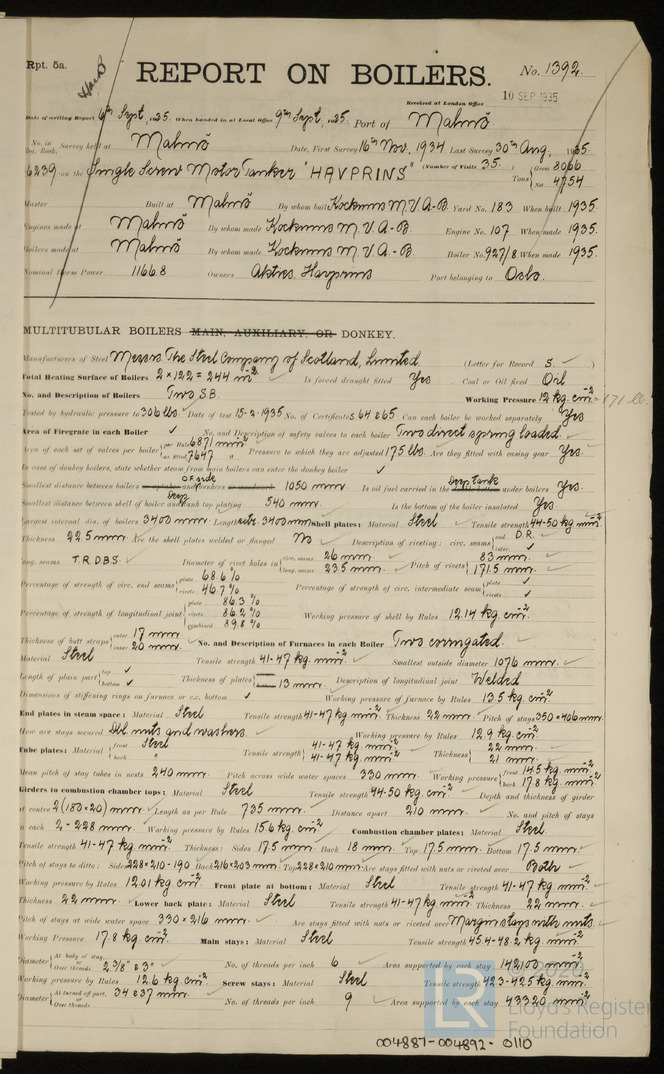 Rpt. 5a.
REPORT ON BOILERS.
No. 1392
Received at London Office
10 SEP 1935
Date of writing Report 6th Sept, 1935. When handed in at Local Office 9th Sept, 1935 Port of Malmö
No. in Reg. Book. Survey held at Malmö Date, First Survey 16th Nov. 1934 Last Survey 30th Aug, 1935.
6239 on the Single Screw Motor Tanker "HAVPRINS" (Number of Visits 35.) Tons Gross 8066
Net 4754
Master Built at Malmö By whom built Kockums M.V. A-B. Yard No. 183 When built 1935.
Engines made at Malmö By whom made Kockums M.V. A-B. Engine No. 107 When made 1935.
Boilers made at Malmö By whom made Kockums M.V. A-B. Boiler No. 927/8 When made 1935.
Nominal Horse Power 1166.8 Owners Aktres. Havprins Port belonging to Oslo.
MULTITUBULAR BOILERS MAIN, AUXILIARY, OR DONKEY.
Manufacturers of Steel Messrs The Steel Company of Scotland, Limited. (Letter for Record S. )
Total Heating Surface of Boilers 2 × 122 = 244 m² Is forced draught fitted Yes Coal or Oil fired Oil
No. and Description of Boilers Two S.B. Working Pressure 12 kg. cm² = 171 lb.
Tested by hydraulic pressure to 306 lbs. Date of test 15-2-1935 No. of Certificate 64 & 65 Can each boiler be worked separately Yes
Area of Firegrate in each Boiler ✓ No. and Description of safety valves to each boiler Two direct spring loaded.
Area of each set of valves per boiler per Rule 6871 mm²
as fitted 7647 " Pressure to which they are adjusted 175 lbs. Are they fitted with easing gear Yes.
In case of donkey boilers, state whether steam from main boilers can enter the donkey boiler ✓
Smallest distance between boilers O.F. side 1050 mm. Is oil fuel carried in the Deep tank under boilers Yes.
Smallest distance between shell of boiler and Deep tank top plating 540 mm. Is the bottom of the boiler insulated Yes.
Largest internal dia. of boilers 3400 mm. Length 3400 mm Shell plates: Material Steel Tensile strength 44-50 kg mm²
Thickness 22.5 mm. Are the shell plates welded or flanged No Description of riveting: circ. seams end D.R.
inter. ✓
long. seams T.R.D.B.S. Diameter of rivet holes in circ. seams 26 mm
long. seams 23.5 mm. Pitch of rivets 83 mm.
171.5 mm.
Percentage of strength of circ. end seams plate 68.6 %
rivets 46.7 % Percentage of strength of circ. intermediate seam plate ✓
rivets ✓
Percentage of strength of longitudinal joint plate 86.3 %
rivets 86.2 %
combined 89.8 % Working pressure of shell by Rules 12.14 kg. cm².
Thickness of butt straps outer 17 mm
inner 20 mm No. and Description of Furnaces in each Boiler Two corrugated.
Material Steel Tensile strength 41-47 kg. mm² Smallest outside diameter 1076 mm.
Length of plain part top ✓
bottom ✓ Thickness of plates 13 mm. Description of longitudinal joint Welded
Dimensions of stiffening rings on furnace or c.c. bottom ✓ Working pressure of furnace by Rules 13.5 kg. cm².
End plates in steam space: Material Steel Tensile strength 41-47 kg. mm². Thickness 22 mm. Pitch of stays 350 × 406 mm.
How are stays secured Dbl. nuts and washers. Working pressure by Rules 12.9 kg. cm².
Tube plates: Material front Steel
back " Tensile strength 41-47 kg. mm²
41-47 kg. mm² Thickness 22 mm.
21 mm.
Mean pitch of stay tubes in nests 240 mm. Pitch across wide water spaces 330 mm. Working pressure front 14.5 kg. mm²
back 17.8 kg. mm²
Girders to combustion chamber tops: Material Steel Tensile strength 44-50 kg. mm² Depth and thickness of girder
at centre 2(180×20) mm. Length as per Rule 735 mm. Distance apart 210 mm. No. and pitch of stays
in each 2-228 mm. Working pressure by Rules 15.6 kg. cm² Combustion chamber plates: Material Steel
Tensile strength 41-47 kg. mm² Thickness: Sides 17.5 mm. Back 18 mm. Top 17.5 mm. Bottom 17.5 mm.
Pitch of stays to ditto: Sides 228×210-190 Back 216×203 mm. Top 228×210 mm. Are stays fitted with nuts or riveted over Both
Working pressure by Rules 12.01 kg. cm². Front plate at bottom: Material Steel Tensile strength 41-47 kg. mm²
Thickness 22 mm. Lower back plate: Material Steel Tensile strength 41-47 kg. mm². Thickness 22 mm.
Pitch of stays at wide water space 330 × 216 mm. Are stays fitted with nuts or riveted over Margin stays with nuts.
Working Pressure 17.8 kg. cm². Main stays: Material Steel Tensile strength 45.4-48.2 kg. mm²
Diameter At body of stay, or Over threads 2 3/8" & 3" No. of threads per inch 6 Area supported by each stay 142100 mm²
Working pressure by Rules 12.6 kg. cm² Screw stays: Material Steel Tensile strength 42.3-42.5 kg. mm²
Diameter At turned off part, or Over threads 34 & 37 mm. No. of threads per inch 9 Area supported by each stay 43320 mm²
© 2020
LR
Lloyd's Register
Foundation
004887-004892-0110